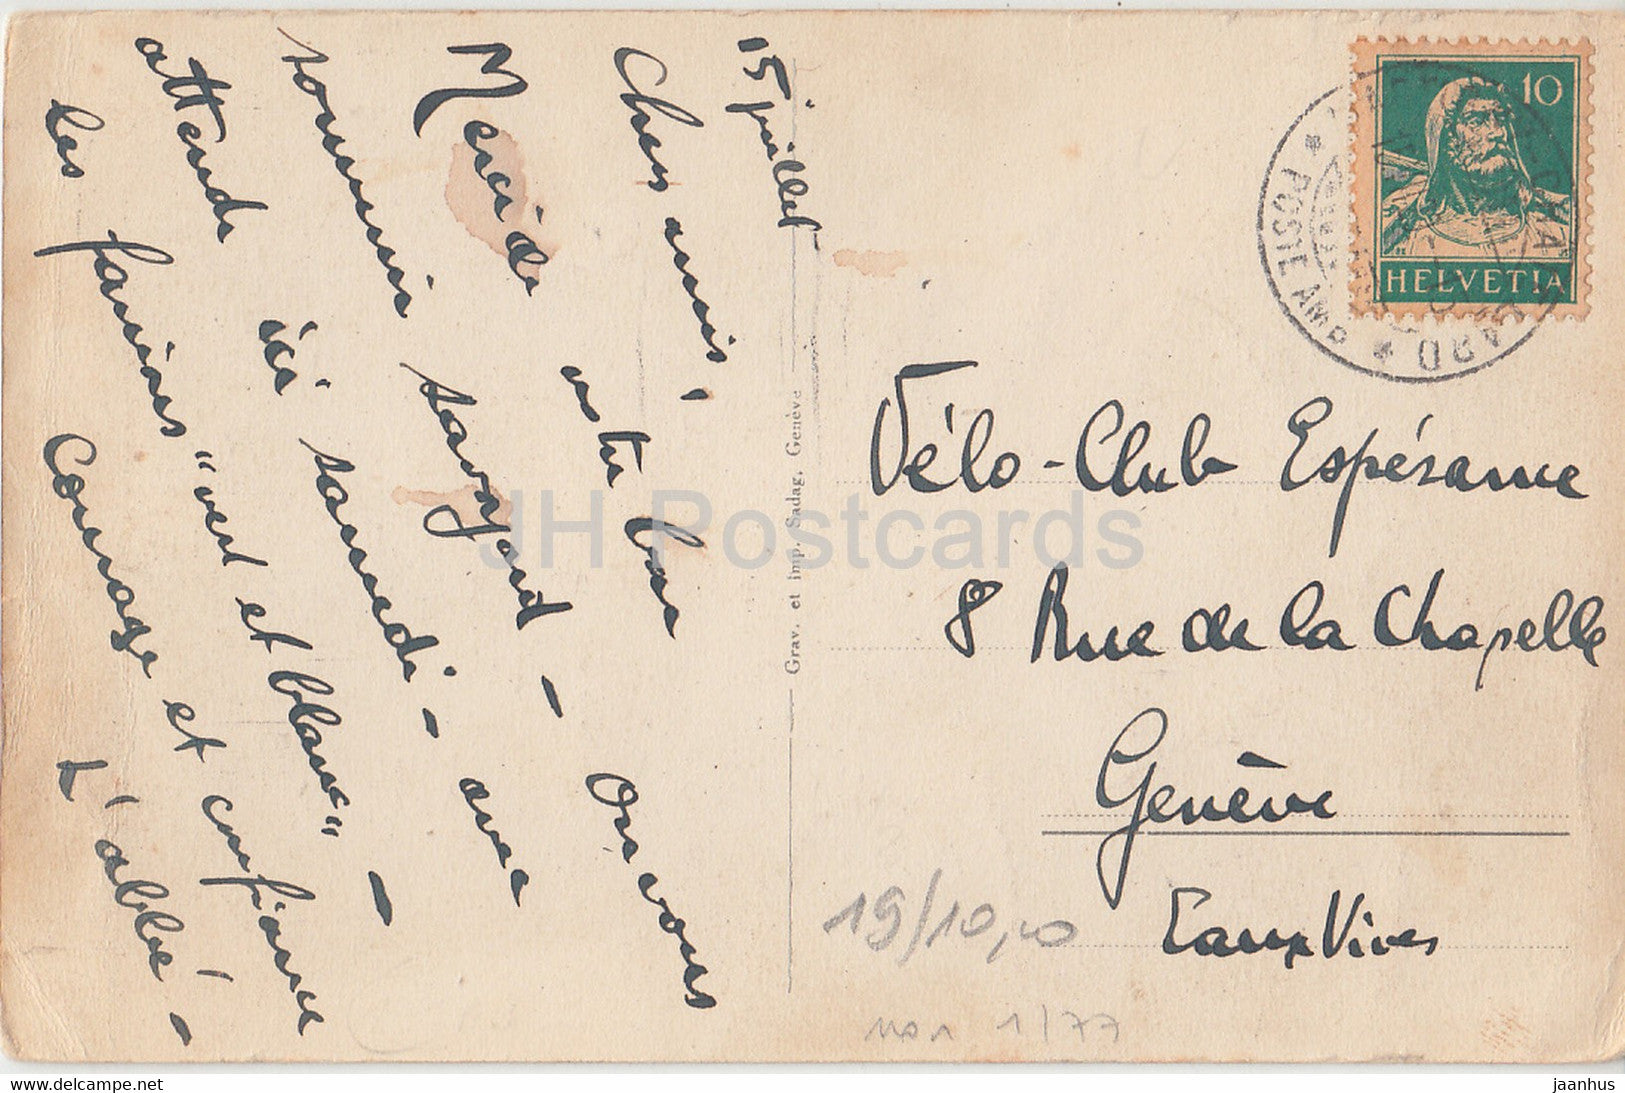 15 juillet
Chers amis,
Merci de votre bon
souvenir savoyard - On vous
attend ici samedi - avec
les fanions "vert et blanc" -
Courage et confiance
L'abbé -
Grav. et imp. Sadag. Genève
10
HELVETIA
POSTE AMB
Vélo-Club Espérance
8 Rue de la Chapelle
Genève
Eaux Vives
19/10,00
1/77
JH Postcards
delcampe.net
jaanhus